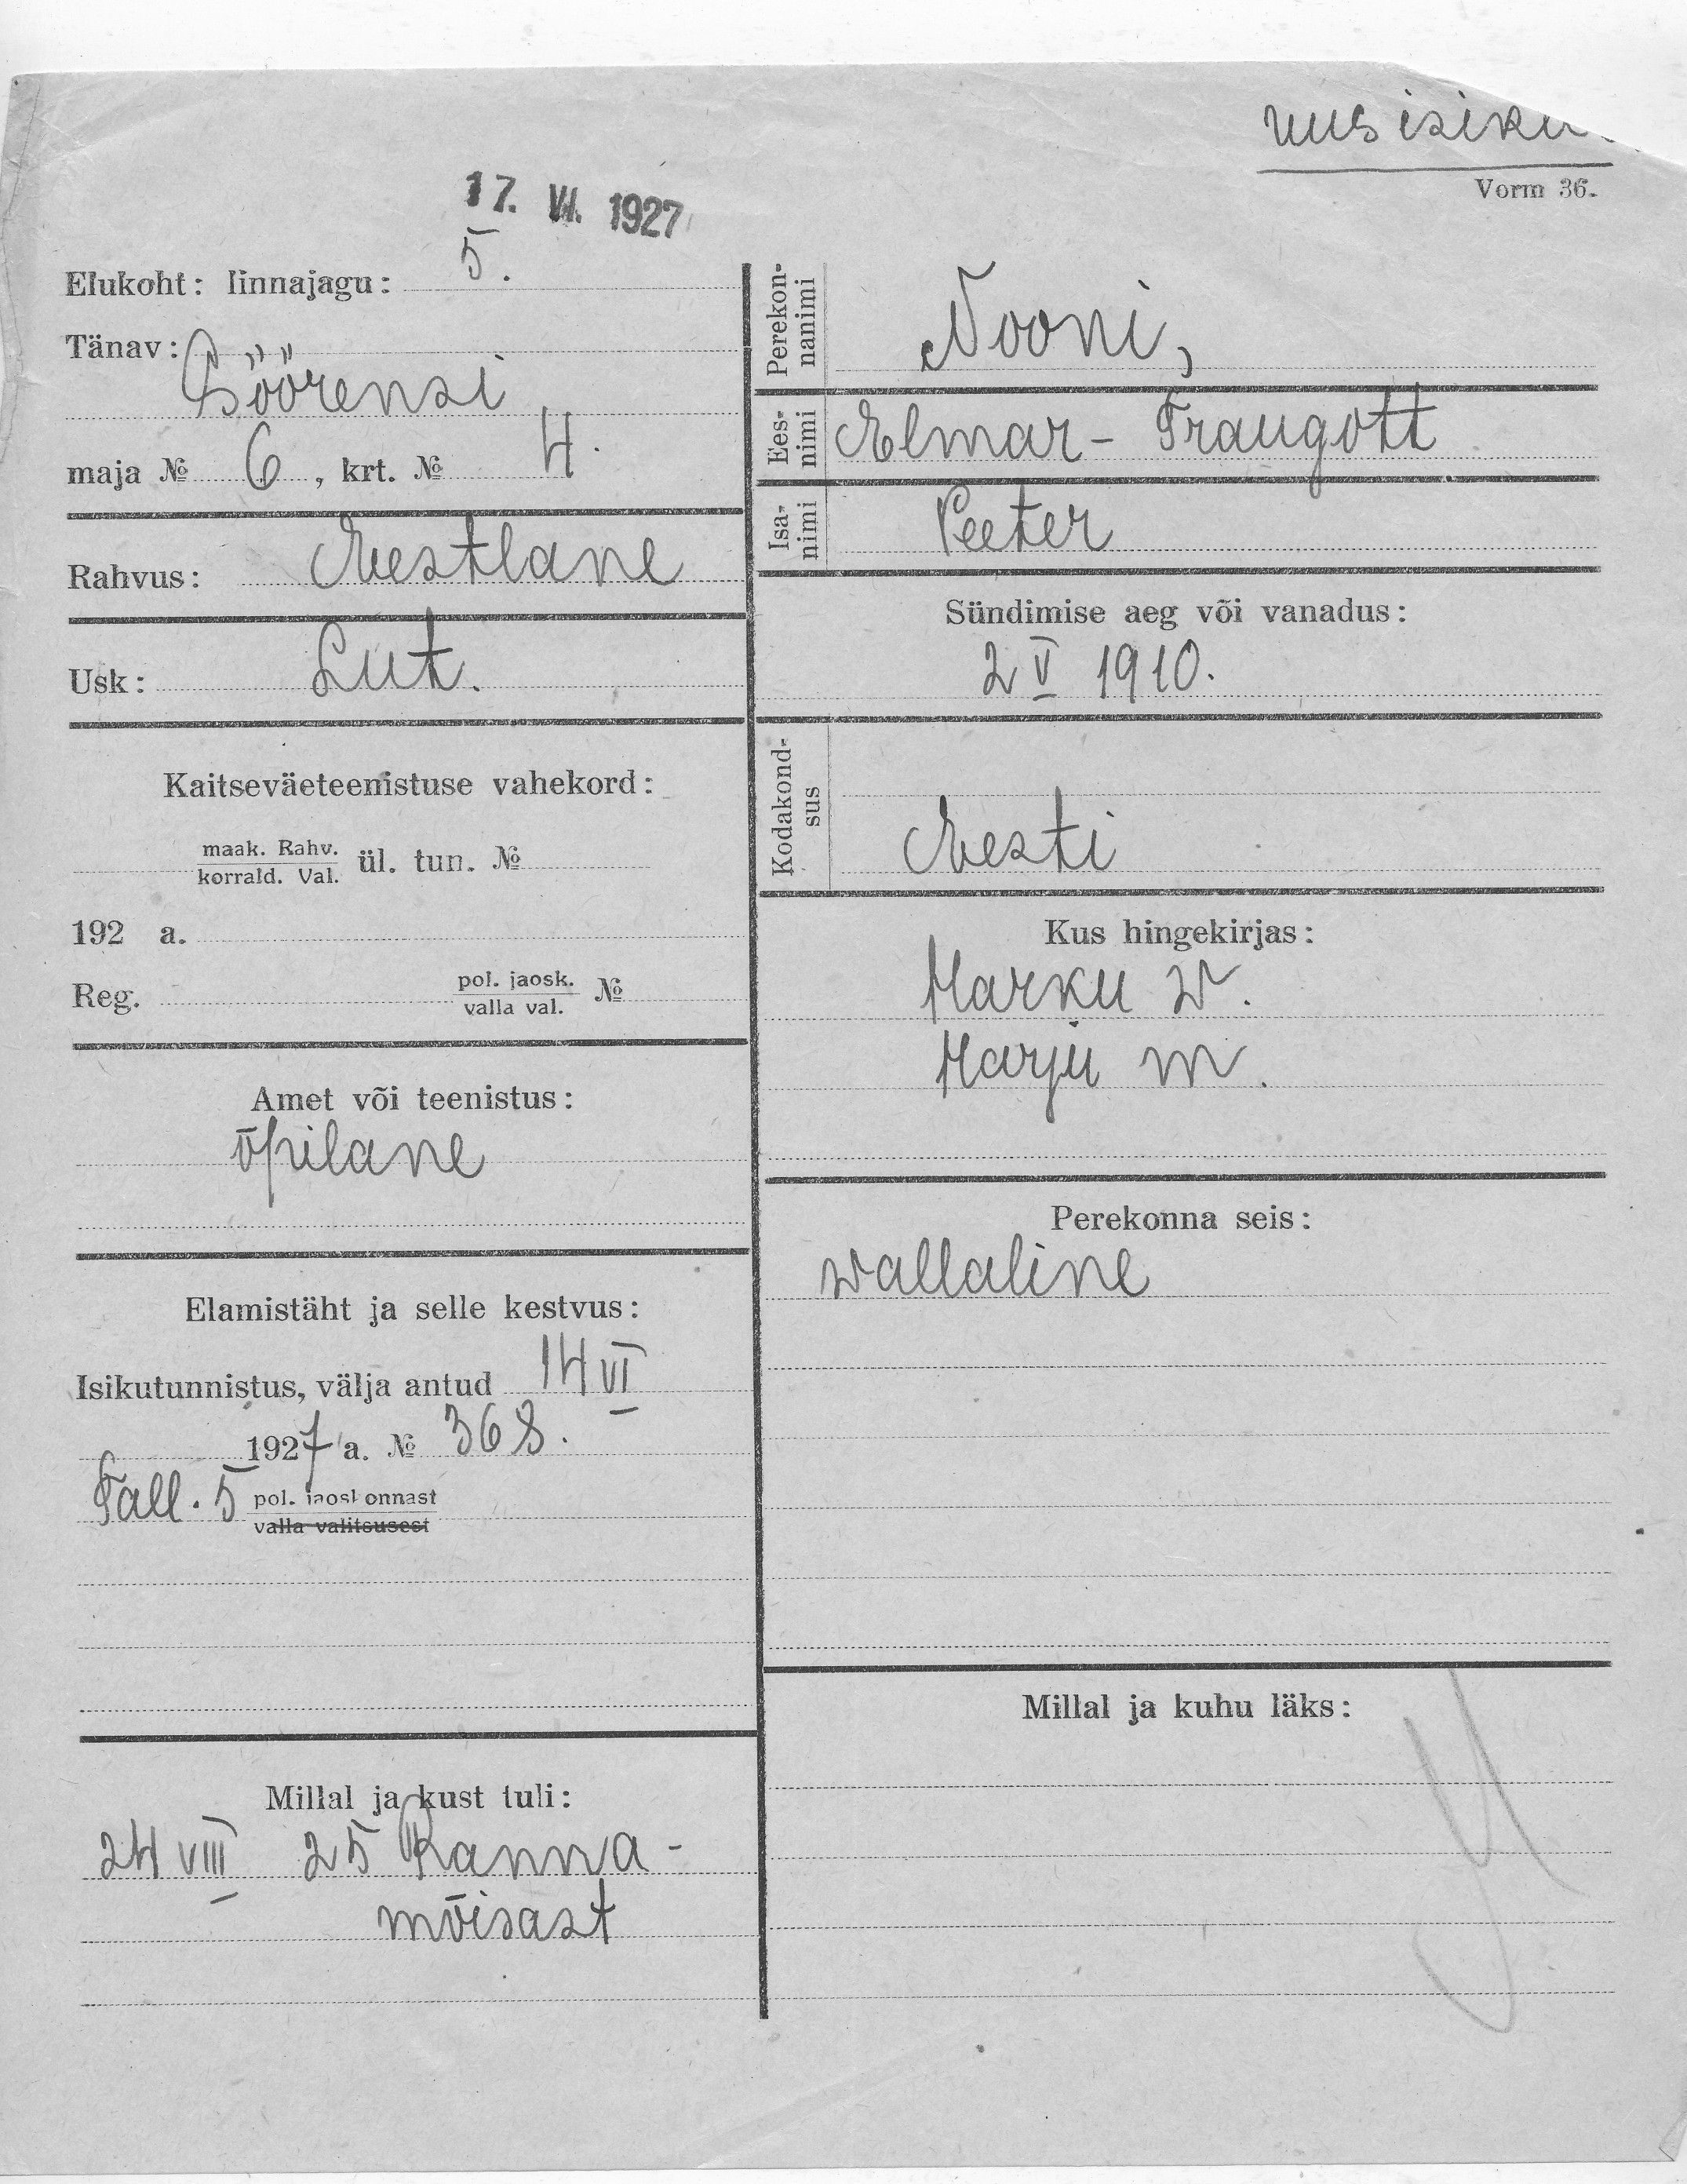 uus isiku
Vorm 36.
17. VI. 1927
Elukoht: linnajagu: 5.
Tänav:
Söörensi
maja № 6, krt. № 4.
Rahvus: Eestlane
Usk: Lut.
Kaitseväeteenistuse vahekord:
maak. Rahv.
korrald. Val. ül. tun. №
192 a.
Reg. pol. jaosk.
valla val. №
Amet või teenistus:
õpilane
Elamistäht ja selle kestvus:
Isikutunnistus, välja antud 14 VI
1927 a. № 368.
Tall. 5 pol. jaoskonnast
valla valitsusest
Millal ja kust tuli:
24 VIII 25 Ranna-
mõisast
Perekon-
nanimi
Nooni,
Ees-
nimi
Elmar-Traugott
Isa-
nimi
Peeter
Sündimise aeg või vanadus:
2 V 1910.
Kodakond-
sus
Eesti
Kus hingekirjas:
Harku w.
Harju m.
Perekonna seis:
wallaline
Millal ja kuhu läks: